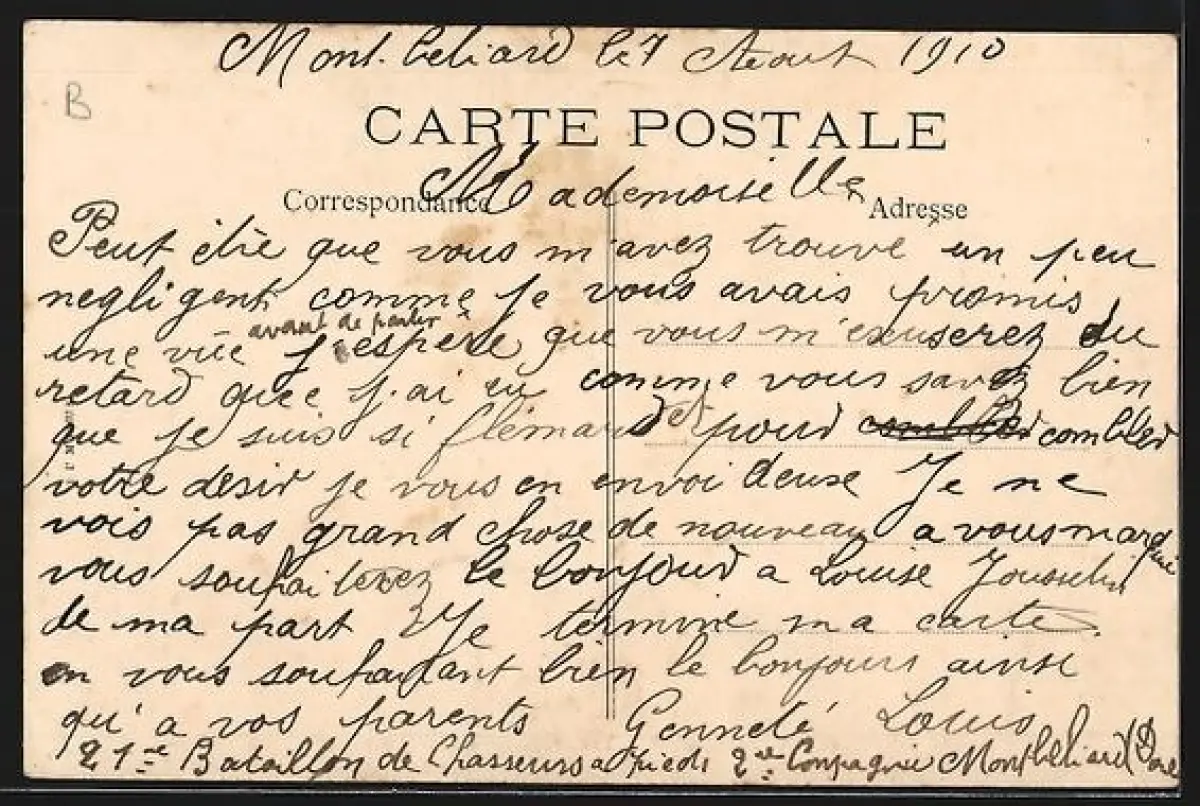 Mont-beliard le 7 Aout 1910
B
CARTE POSTALE
Mademoiselle
Correspondance
Adresse
Peut être que vous m'avez trouvé un peu
negligent comme je vous avais promis
une vue avant de partir j'espère que vous m'exuserez du
retard que j'ai eu comme vous savez bien
que je suis si flémard et pour combler
votre desir je vous en envoi deuse Je ne
vois pas grand chose de nouveau a vous marqué
vous souhaiterez le bonjour a Louise Jousselin
de ma part Je termine ma carte
en vous souhaitant bien le bonjours ainsi
qu'a vos parents Genneté Louis
21me Bataillon de Chasseurs a Pieds 2me Compagnie Montbeliard (Dou